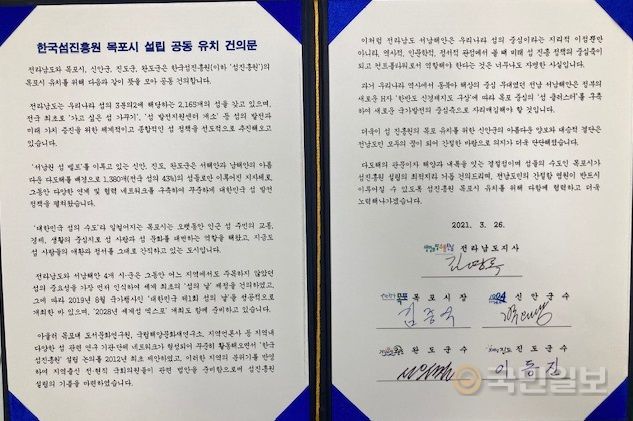 한국섬진흥원 목포시 설립 공동 유치 건의문
전라남도와 목포시, 신안군, 진도군, 완도군은 한국섬진흥원(이하 '섬진흥원')의
목포시 유치를 위해 다음과 같이 뜻을 모아 공동 건의합니다.
전라남도는 우리나라 섬의 3분의2에 해당하는 2,165개의 섬을 갖고 있으며,
전국 최초로 '가고 싶은 섬 가꾸기', '섬 발전지원센터 개소' 등 섬의 발전과
미래 가치 증진을 위한 체계적이고 종합적인 섬 정책을 선도적으로 추진해오고
있습니다.
'서남권 섬 벨트'를 이루고 있는 신안, 진도, 완도군은 서해안과 남해안의 아름
다운 다도해를 배경으로 1,380개(전국 섬의 43%)의 섬들로만 이루어진 지자체로,
그동안 다양한 연계 및 협력 네트워크를 구축하여 꾸준하게 대한민국 섬 발전
정책을 펼쳐왔습니다.
'대한민국 섬의 수도'라 일컬어지는 목포시는 오랫동안 인근 섬 주민의 교통,
경제, 생활의 중심지로 섬 사람과 섬 문화를 대변하는 역할을 해왔고, 지금도
섬 사람들의 애환과 정서를 그대로 간직하고 있는 도시입니다.
전라남도와 서남해안 4개 시·군은 그동안 어느 지역에서도 주목하지 않았던
섬의 중요성을 가장 먼저 인식하여 세계 최초의 '섬의 날' 제정을 건의하였고,
그에 따라 2019년 8월 국가행사인 '대한민국 제1회 섬의 날'을 성공적으로
개최한 바 있으며, '2028년 세계섬 엑스포' 개최도 함께 준비하고 있습니다.
아울러 목포대 도서문화연구원, 국립해양문화재연구소, 지역언론사 등 지역내
다양한 섬 관련 연구 기관·단체 네트워크가 형성되어 꾸준히 활동해오면서 '한국
섬진흥원' 설립 논의를 2012년 최초 제안하였고, 이러한 지역의 분위기를 반영
하여 지역출신 전·현직 국회의원들이 관련 법안을 준비함으로써 섬진흥원
설립의 기틀을 마련하였습니다.
이처럼 전라남도 서남해안은 우리나라 섬의 중심이라는 지리적 이점뿐만
아니라, 역사적, 인문학적, 정서적 관점에서 볼 때 미래 섬 진흥 정책의 중심축이
되고 컨트롤타워로서 역할해야 한다는 것은 너무나도 자명한 사실입니다.
과거 우리나라 역사에서 동북아 해상의 중심 무대였던 전남 서남해안은 정부의
새로운 묘자 '한반도 신경제지도 구상'에 따라 목포 중심의 '섬 클러스터'를 구축
하여 새로운 국가발전의 중심축으로 자리매김해야 할 것입니다.
더욱이 섬 진흥원의 목포 유치를 위한 신안군의 아름다운 양보와 대승적 결단은
전남도민 모두의 꿈이 되어 간절한 바람으로 의지가 더욱 단단해졌습니다.
다도해의 관문이자 해양과 내륙을 잇는 결절점이며 섬들의 수도인 목포시에
섬진흥원 설립의 최적지라 거듭 건의드리며, 전남도민의 간절한 염원이 반드시
이루어질 수 있도록 섬진흥원 목포시 유치를 위해 다함께 협력하고 더욱
노력해나가겠습니다.
2021. 3. 26.
전라남도지사
김영록
목포시장 신안군수
김종식
완도군수 진도군수
이동진
국민일보